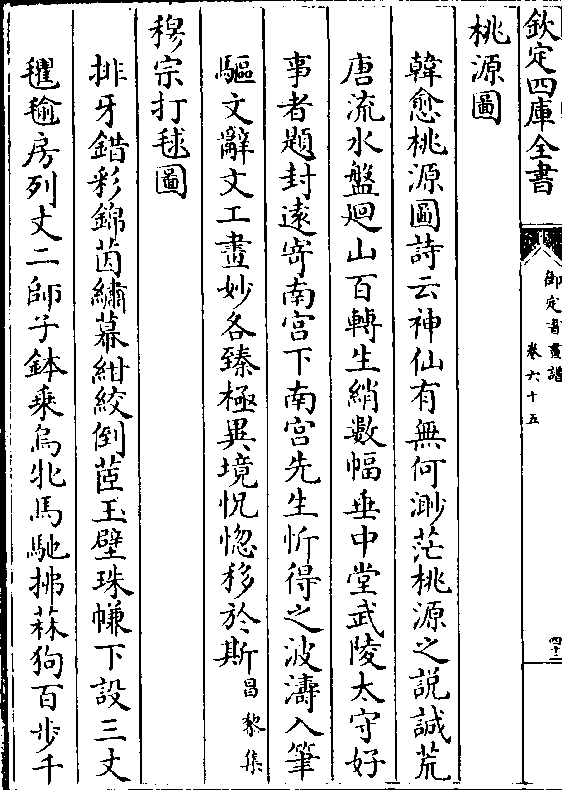 欽定四庫全書
御定書畫譜
卷六十五
四十二
桃源圖
韓愈桃源圖詩云神仙有無何渺茫桃源之說誠荒
唐流水盤廻山百轉生綃數幅垂中堂武陵太守好
事者題封遠寄南宫下南宫先生忻得之波濤入筆
驅文辭文工畫妙各臻極異境怳惚移於斯昌黎集
穆宗打毬圖
排牙錯彩錦茵繡幕紺絞倒茝玉壁珠㡘下設三丈
氍毹房列丈二師子鉢乗烏牝馬馳拂菻狗百步千